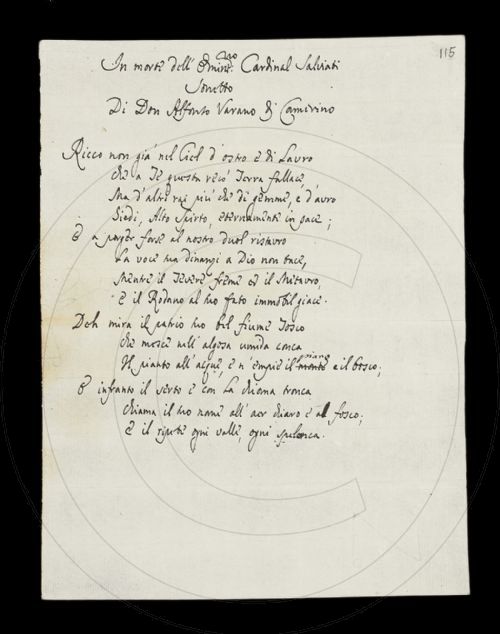 115
In morte dell' Emin.mo Cardinal Salviati
Sonetto
Di Don Alfonso Varano di Camerino
Ricco non già nel Ciel d'ostro e di Lauro
che a Te questa recò Terra fallace,
Ma d'altri rai più che di gemme, e d'auro
Siedi, Alto Spirto, eternamente in pace;
E a porger forse al nostro duol ristauro
La voce tua dinanzi a Dio non tace,
Mentre il Tevere freme ed il Metauro,
E il Rodano al tuo fato immobil giace.
Deh mira il patrio tuo bel fiume Tosco
che mesce nell' algosa umida conca
Il pianto all' acque, e n'empie il monte e il bosco;
E infranto il serto e con La chioma tronca
chiama il tuo nome all' aer chiaro e al fosco;
E il ripete ogni valle, ogni spelonca.